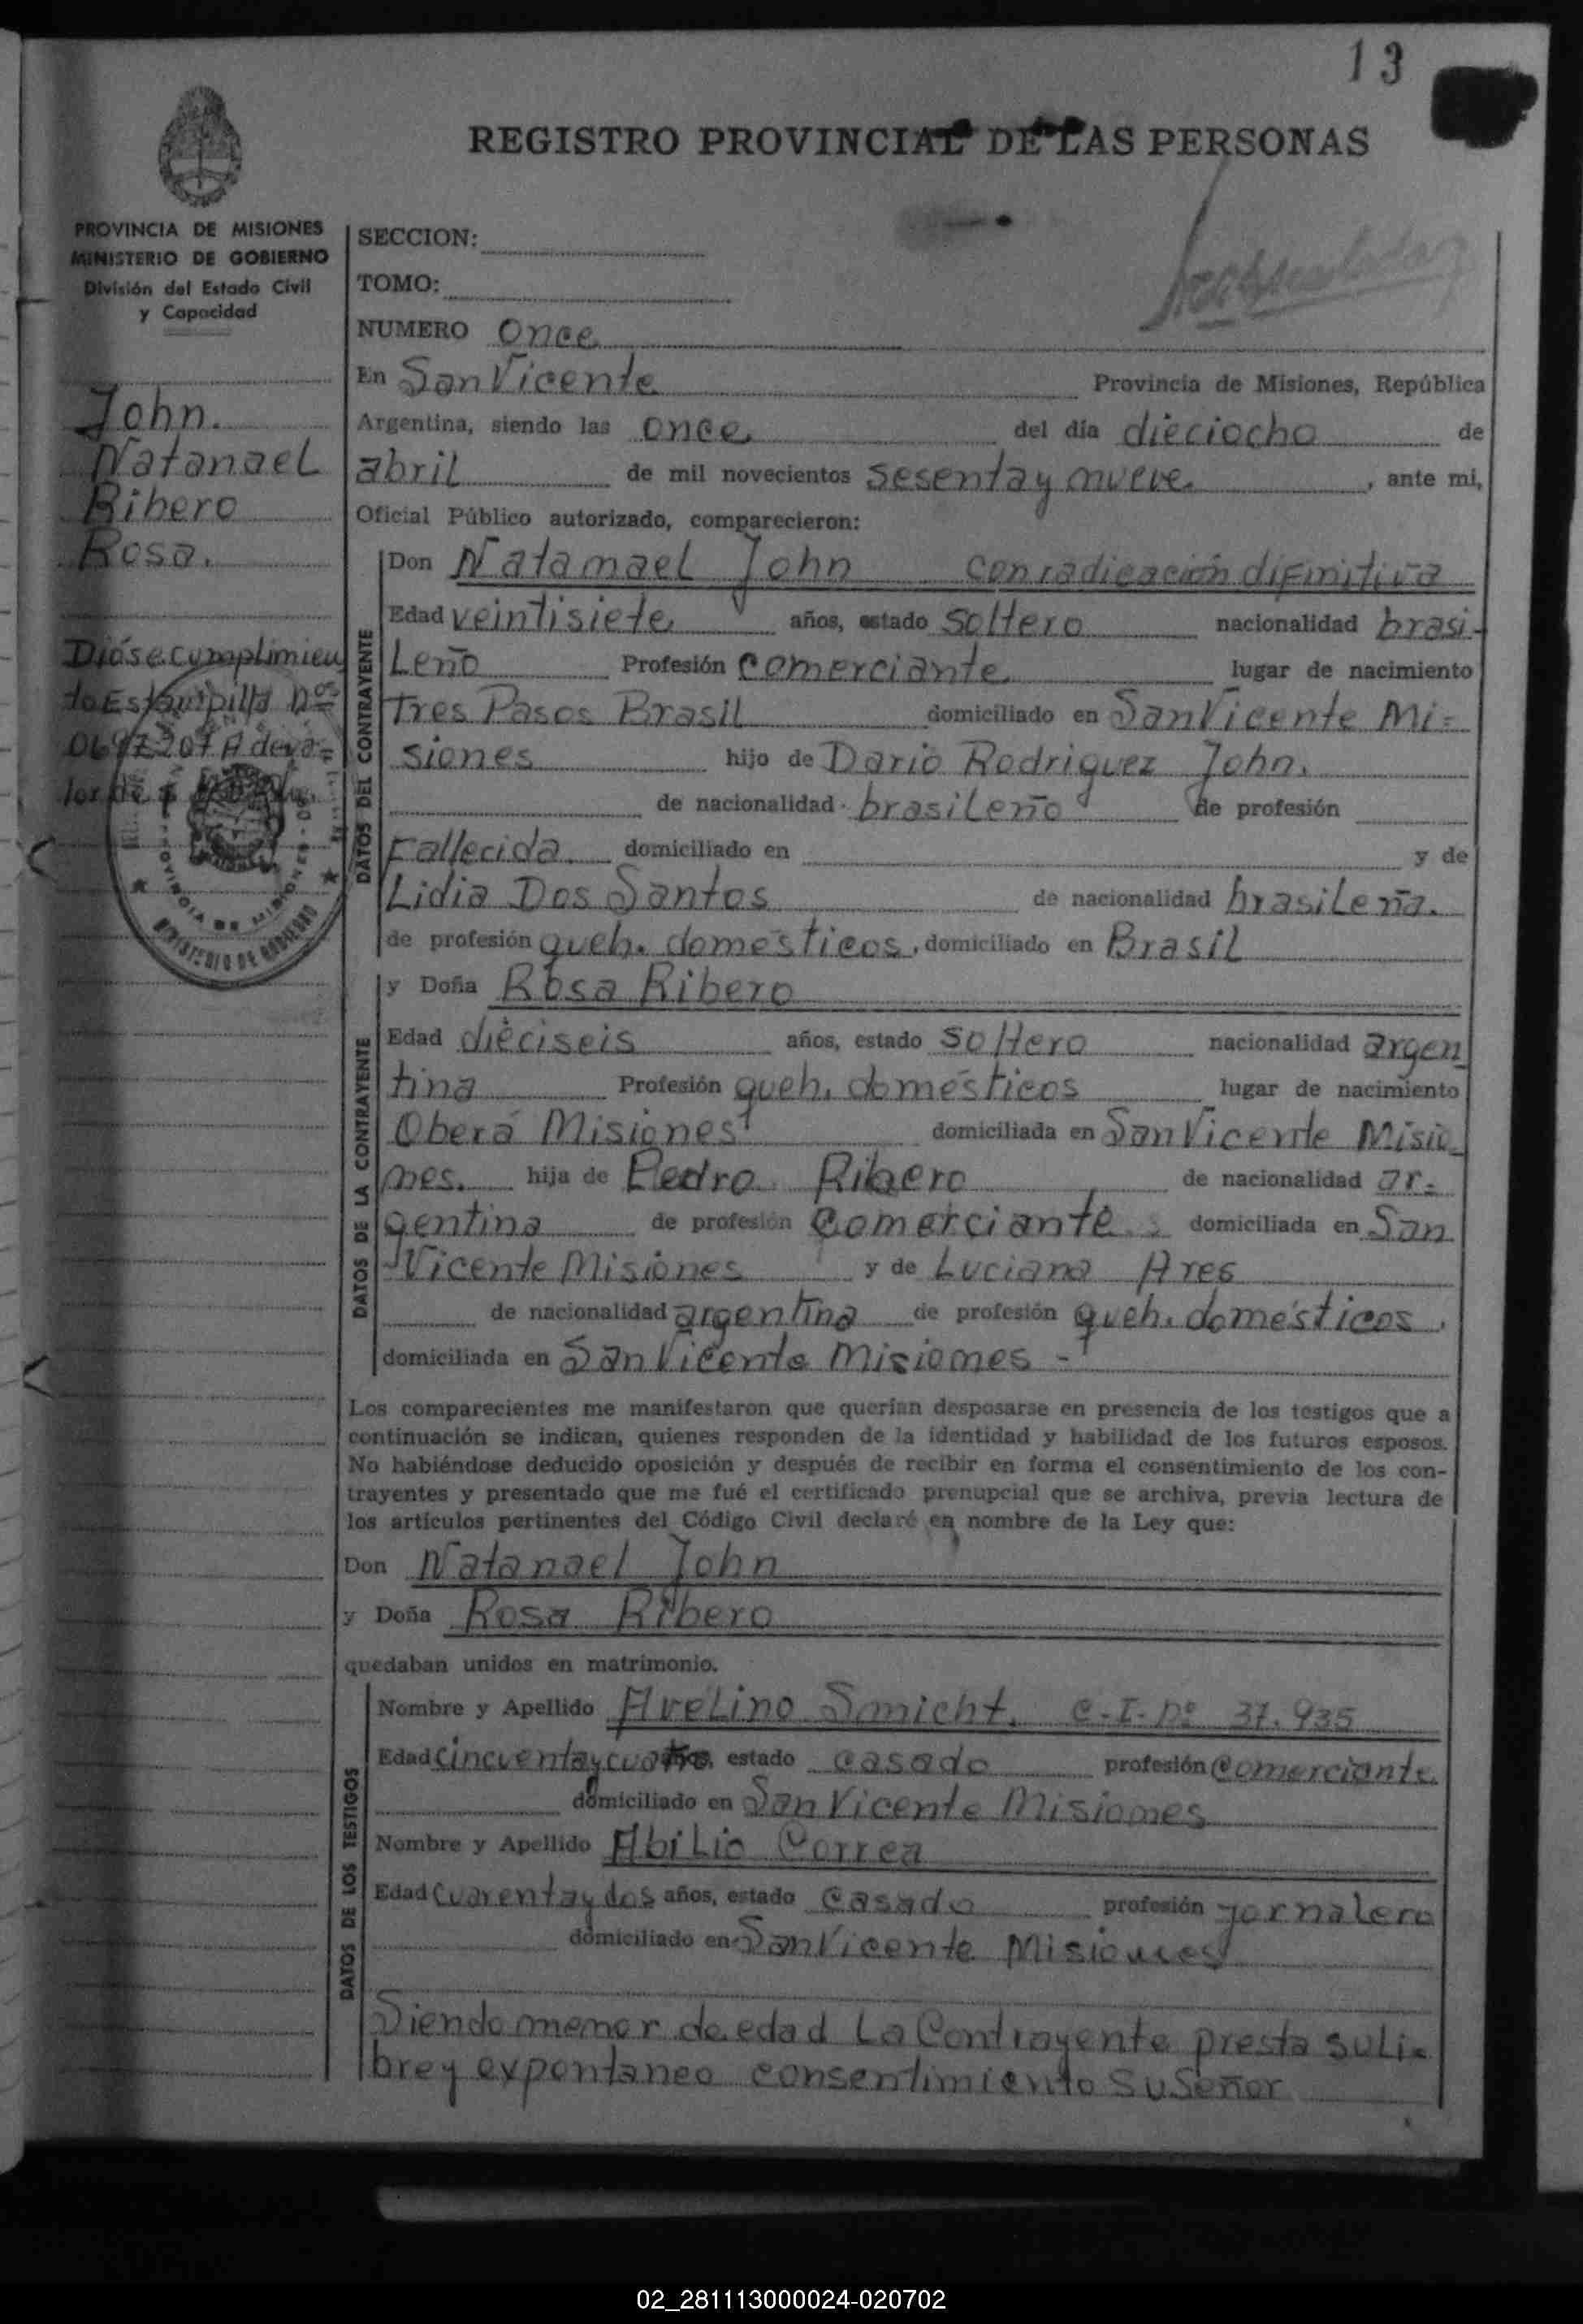 13
REGISTRO PROVINCIAL DE LAS PERSONAS
PROVINCIA DE MISIONES
MINISTERIO DE GOBIERNO
División del Estado Civil
y Capacidad
John.
Natanael
Ribero
Rosa.
Dióse cumplimien
to Estampilla Nos
SECCION:
TOMO:
NUMERO Once
En San Vicente Provincia de Misiones, República
Argentina, siendo las once del día dieciocho de
abril de mil novecientos sesenta y nueve, ante mi,
Oficial Público autorizado, comparecieron:
DATOS DEL CONTRAYENTE
Don Natamael John con radicación difinitiva
Edad veintisiete años, estado soltero nacionalidad brasi-
leño Profesión comerciante lugar de nacimiento
Tres Pasos Brasil domiciliado en San Vicente Mi=
siones hijo de Dario Rodriguez John.
de nacionalidad brasileño de profesión
Fallecida domiciliado en y de
Lidia Dos Santos de nacionalidad brasileña.
de profesión queh. domésticos, domiciliado en Brasil
DATOS DE LA CONTRAYENTE
y Doña Rosa Ribero
Edad dieciseis años, estado soltero nacionalidad argen
tina Profesión queh. domésticos lugar de nacimiento
Oberá Misiones domiciliada en San Vicente Misio_
nes. hija de Pedro Ribero de nacionalidad ar=
gentina de profesión comerciante domiciliada en San
Vicente Misiones y de Luciana Ares
de nacionalidad argentina de profesión queh. domésticos,
domiciliada en San Vicente Misiones -
Los comparecientes me manifestaron que querían desposarse en presencia de los testigos que a
continuación se indican, quienes responden de la identidad y habilidad de los futuros esposos.
No habiéndose deducido oposición y después de recibir en forma el consentimiento de los con-
trayentes y presentado que me fué el certificado prenupcial que se archiva, previa lectura de
los artículos pertinentes del Código Civil declaré en nombre de la Ley que:
Don Natanael John
y Doña Rosa Ribero
quedaban unidos en matrimonio.
DATOS DE LOS TESTIGOS
Nombre y Apellido Avelino Smicht. C.I. Nº 37.935
Edad cincuenta y cuatro estado casado profesión comerciante
domiciliado en San Vicente Misiones
Nombre y Apellido Abilio Correa
Edad cuarenta y dos años, estado casado profesión jornalero
domiciliado en San Vicente Misiones
Siendo menor de edad La Contrayente presta su li=
bre y expontaneo consentimiento su Señor
02_281113000024-020702